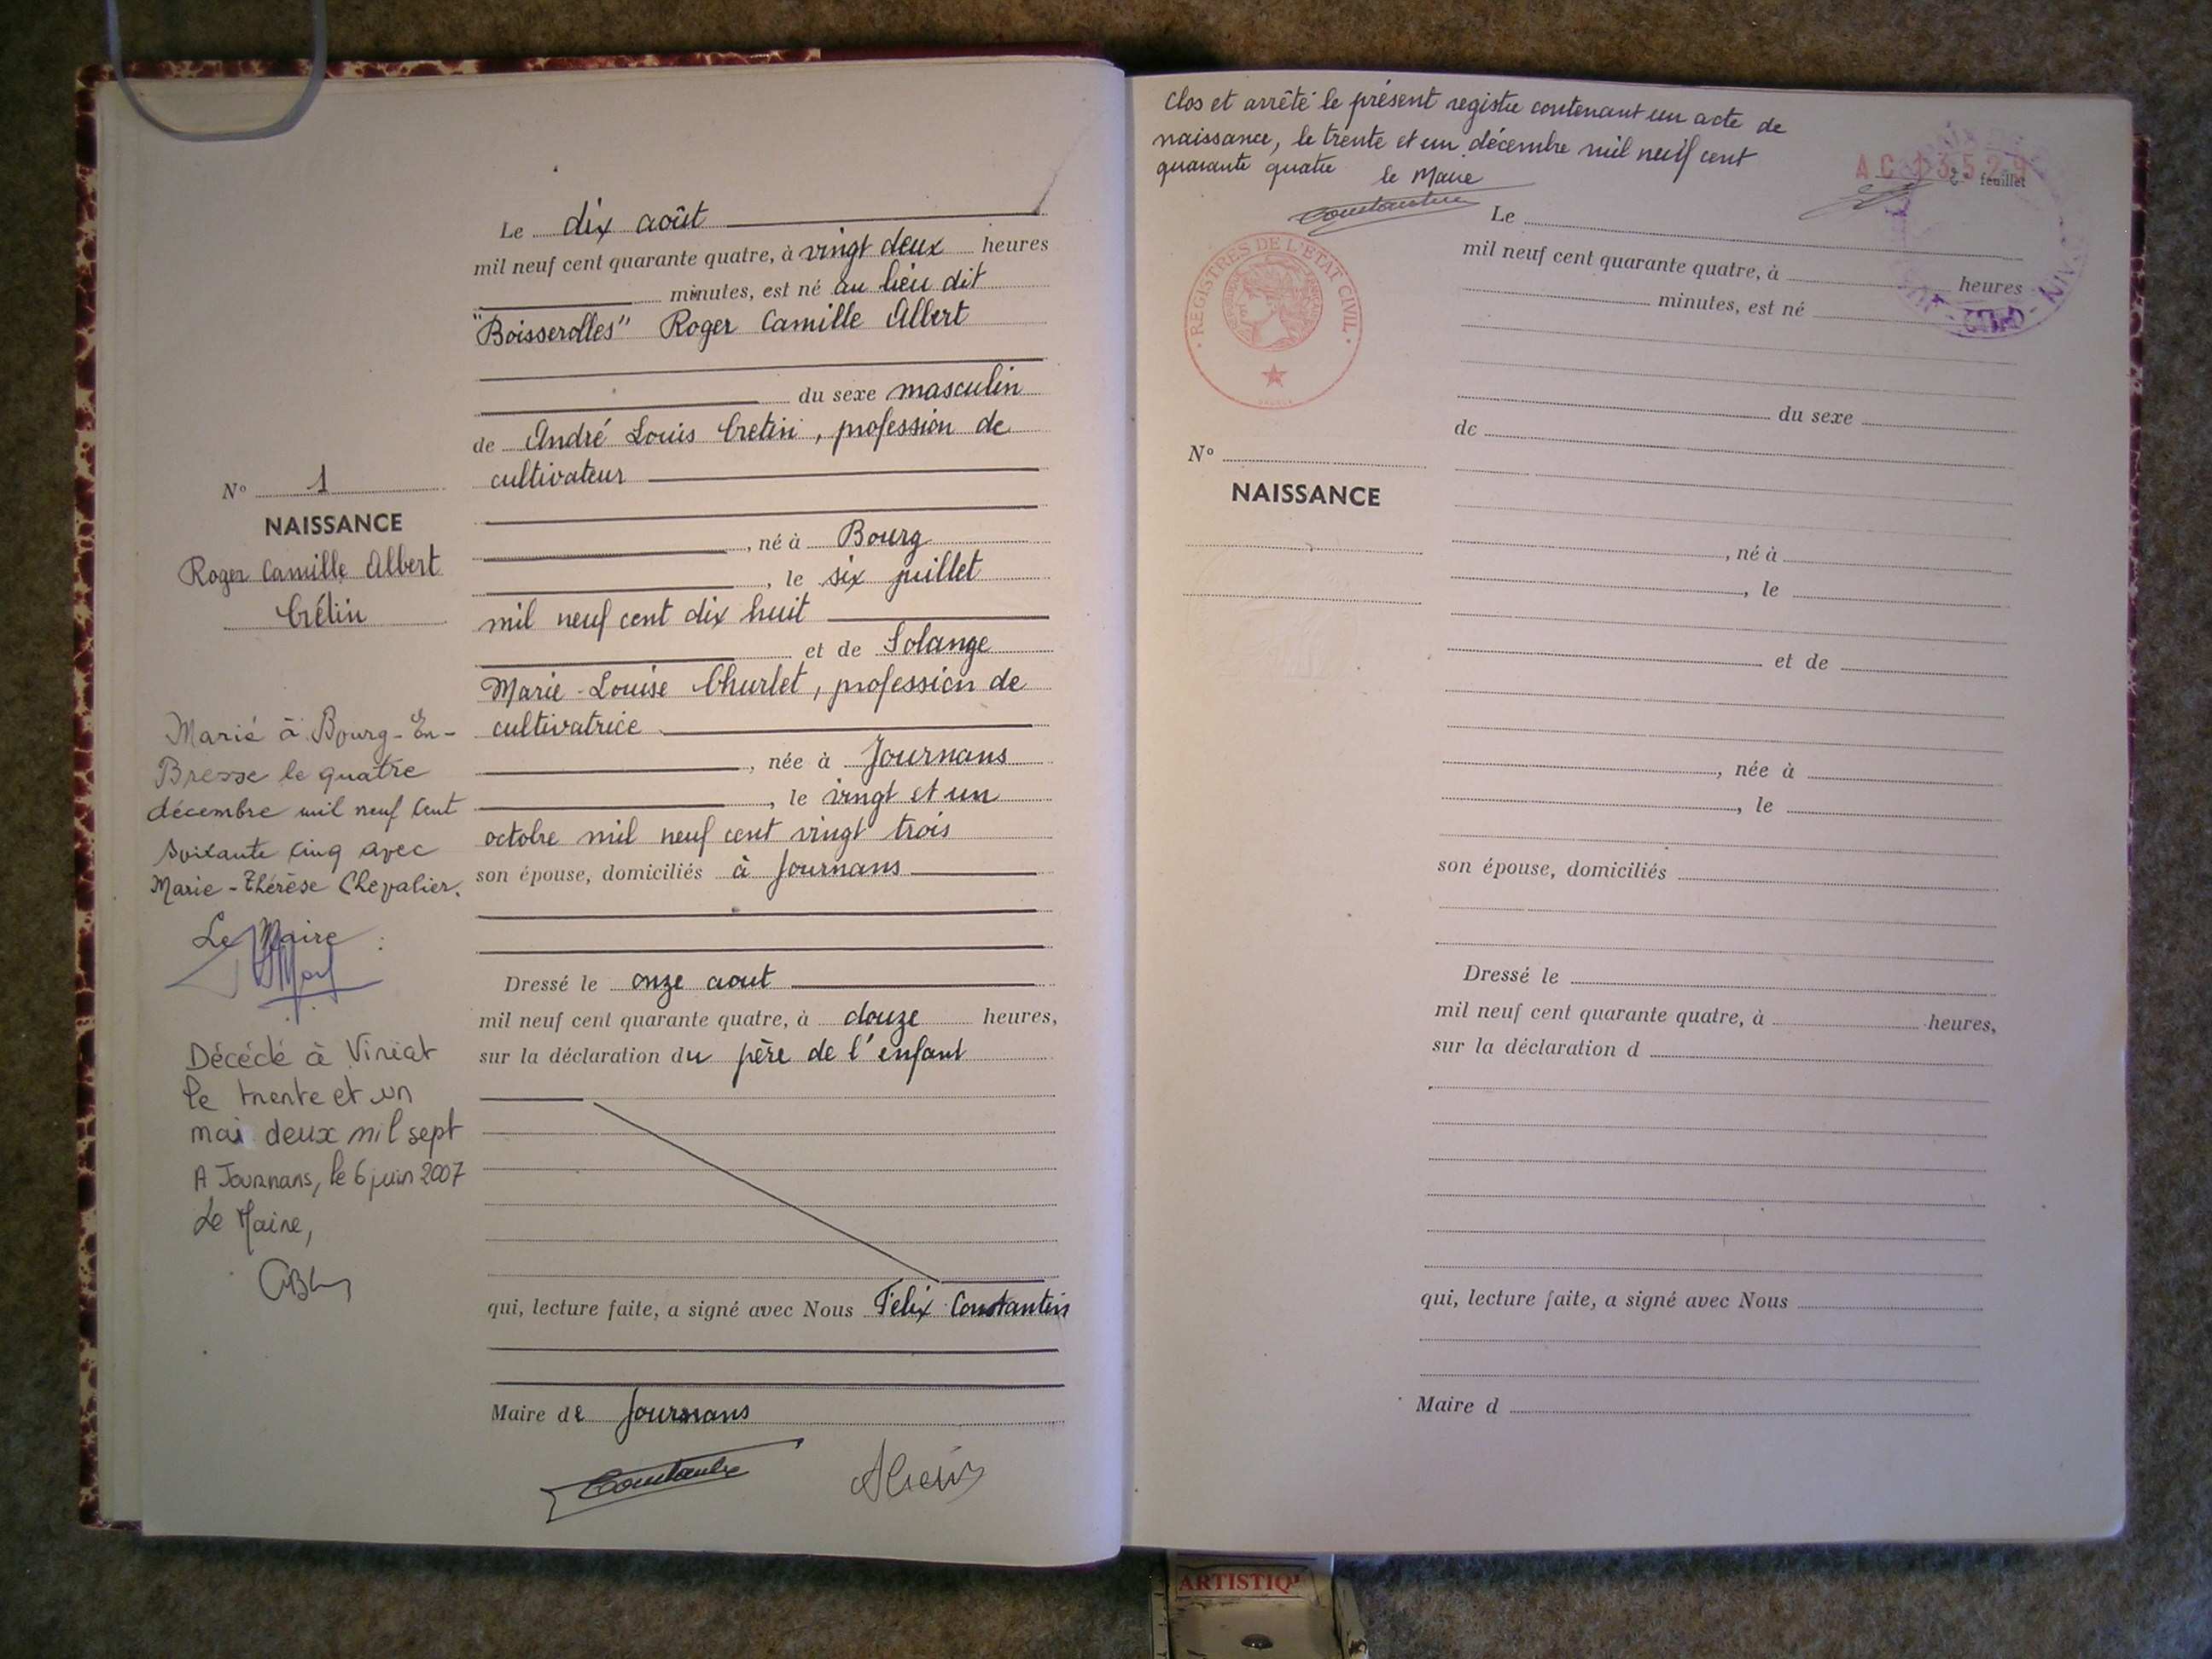 Le dix août
mil neuf cent quarante quatre, à vingt deux heures
minutes, est né au lieu dit
"Boisserolles" Roger Camille Albert
du sexe masculin
de André Louis Cretin, profession de
cultivateur
, né à Bourg
, le six juillet
mil neuf cent dix huit
et de Solange
Marie-Louise Churlet, profession de
cultivatrice
, née à Journans
, le vingt et un
octobre mil neuf cent vingt trois
son épouse, domiciliés à Journans
Dressé le onze aout
mil neuf cent quarante quatre, à douze heures,
sur la déclaration du père de l'enfant
qui, lecture faite, a signé avec Nous Félix Constantin
Maire de Journans
Constantin
N° 1
NAISSANCE
Roger Camille Albert
Crétin
Marié à Bourg-En-
Bresse le quatre
décembre mil neuf cent
soixante cinq avec
Marie-Thérèse Chevalier.
Le Maire :
Décédé à Viriat
le trente et un
mai deux mil sept
A Journans, le 6 juin 2007
Le Maire,
Clos et arrêté le présent registre contenant un acte de
naissance, le trente et un décembre mil neuf cent
quarante quatre le Maire
Constantin
AC 13529
2e feuillet
REGISTRES DE L'ETAT CIVIL
Le
mil neuf cent quarante quatre, à heures
minutes, est né
du sexe
de
N°
NAISSANCE
, né à
, le
et de
, née à
, le
son épouse, domiciliés
Dressé le
mil neuf cent quarante quatre, à heures,
sur la déclaration d
qui, lecture faite, a signé avec Nous
Maire d
ARTISTIQ